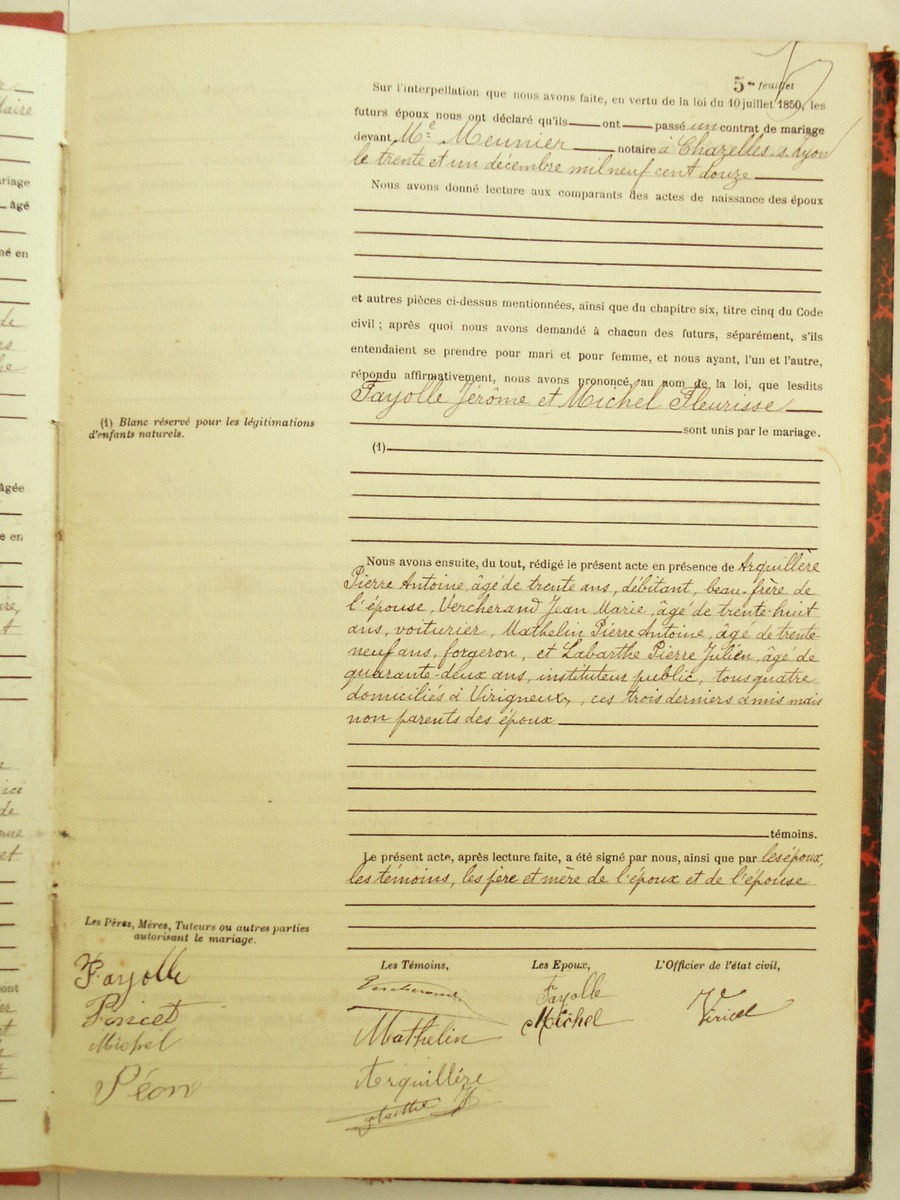 5me feuillet
Sur l'interpellation que nous avons faite, en vertu de la loi du 10 juillet 1850, les
futurs époux nous ont déclaré qu'ils ont passé un contrat de mariage
devant Me Meunier notaire à Chazelles s. Lyon
le trente et un décembre mil neuf cent douze
Nous avons donné lecture aux comparants des actes de naissance des époux
et autres pièces ci-dessus mentionnées, ainsi que du chapitre six, titre cinq du Code
civil ; après quoi nous avons demandé à chacun des futurs, séparément, s'ils
entendaient se prendre pour mari et pour femme, et nous ayant, l'un et l'autre,
répondu affirmativement, nous avons prononcé, au nom de la loi, que lesdits
Fayolle Jérôme et Michel Fleurisse
sont unis par le mariage.
(1) Blanc réservé pour les légitimations
d'enfants naturels.
(1)
Nous avons ensuite, du tout, rédigé le présent acte en présence de Arquillère
Pierre Antoine, âgé de trente ans, débitant, beau-frère de
l'épouse, Vercherand Jean Marie, âgé de trente-huit
ans, voiturier, Mathelin Pierre Antoine, âgé de trente-
neuf ans, forgeron, et Labarthe Pierre Julien, âgé de
quarante-deux ans, instituteur public, tous quatre
domiciliés à Virigneux, ces trois derniers amis mais
non parents des époux
témoins.
Le présent acte, après lecture faite, a été signé par nous, ainsi que par les époux,
les témoins, les père et mère de l'époux et de l'épouse
Les Pères, Mères, Tuteurs ou autres parties
autorisant le mariage.
Fayolle
Poncet
Michel
Péon
Les Témoins,
Vercherand
Mathelin
Arquillère
Les Epoux,
Fayolle
Michel
L'Officier de l'état civil,
Viricel